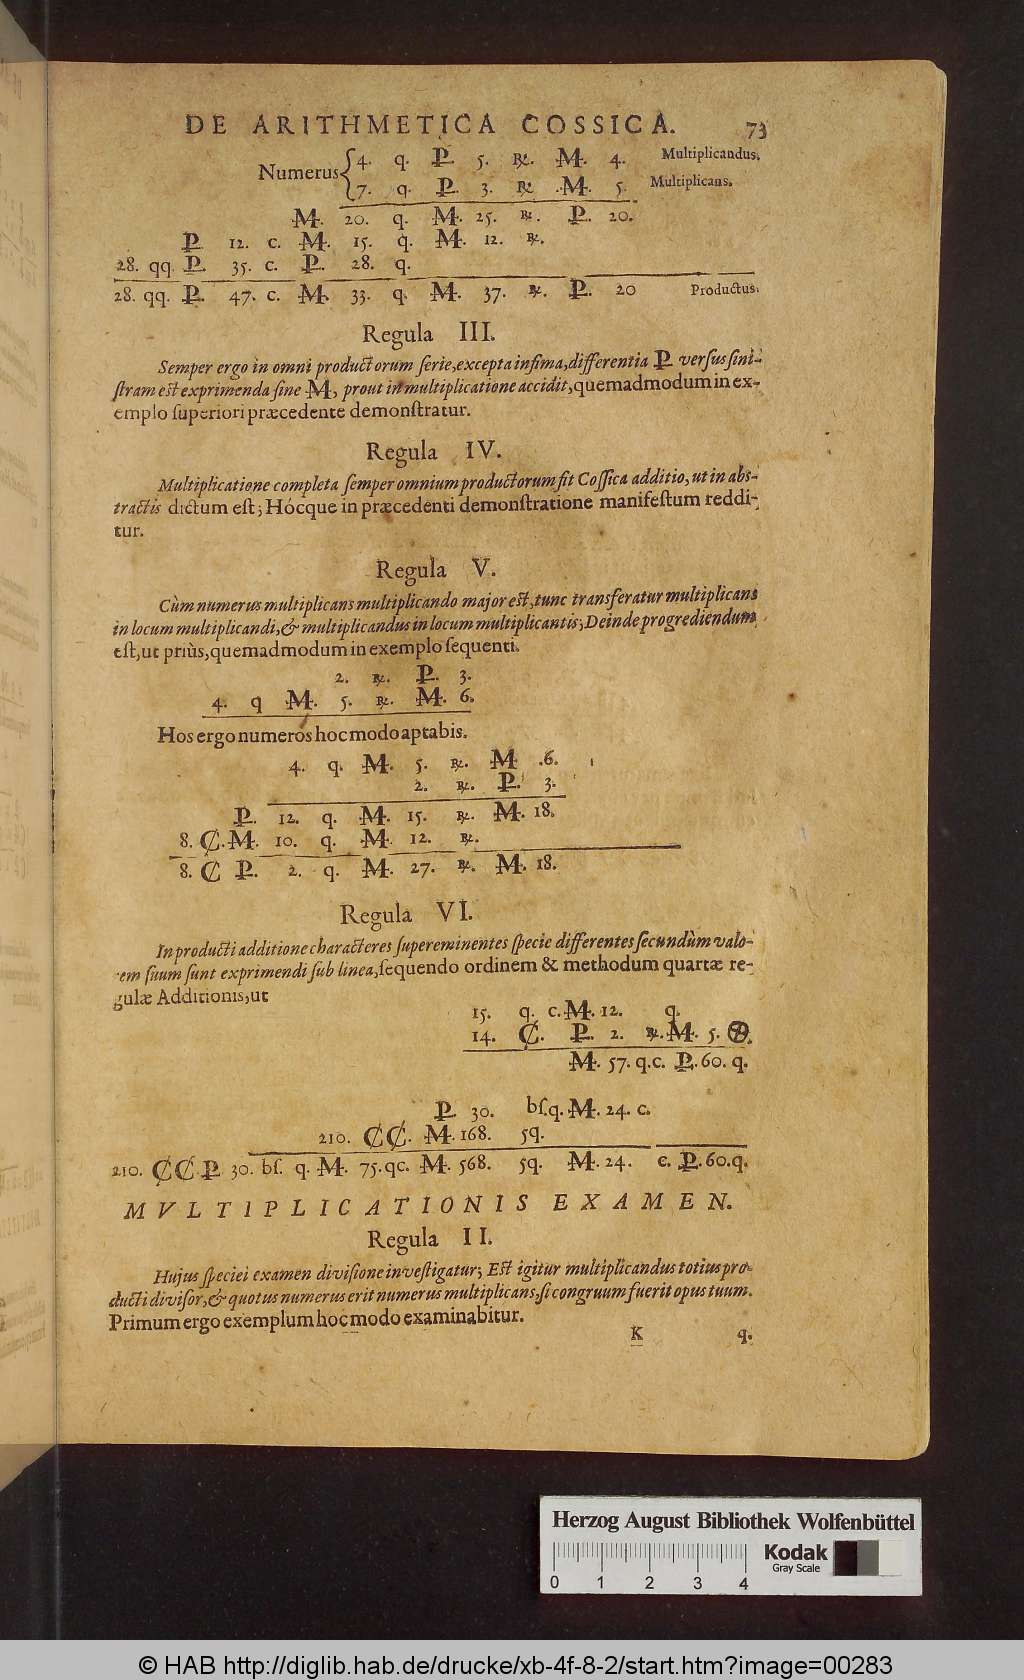 DE ARITHMETICA COSSICA. 73
Numerus { 4. q. P. 5. ℞. M. 4. Multiplicandus.
7. q. P. 3. ℞ M. 5. Multiplicans.
M. 20. q. M. 25. ℞. P. 20.
P. 12. c. M. 15. q. M. 12. ℞.
28. qq. P. 35. c. P. 28. q.
28. qq. P. 47. c. M. 33. q. M. 37. ℞. P. 20 Productus.
Regula III.
Semper ergo in omni productorum ſerie, excepta infima, differentia P verſus ſini-
ſtram est exprimenda ſine M, prout in multiplicatione accidit, quemadmodum in ex-
emplo ſuperiori præcedente demonſtratur.
Regula IV.
Multiplicatione completa ſemper omnium productorum fit Coſſica additio, ut in abs-
tractis dictum eſt; Hócque in præcedenti demonſtratione manifeſtum reddi-
tur.
Regula V.
Cùm numerus multiplicans multiplicando major eſt, tunc transferatur multiplicans
in locum multiplicandi, & multiplicandus in locum multiplicantis; Deinde progrediendum
eſt, ut priùs, quemadmodum in exemplo ſequenti.
2. ℞. P. 3.
4. q M. 5. ℞. M. 6.
Hos ergo numeros hoc modo aptabis.
4. q. M. 5. ℞. M .6.
2. ℞. P. 3.
P. 12. q. M. 15. ℞. M. 18.
8. ₵. M. 10. q. M. 12. ℞.
8. ₵ P. 2. q. M. 27. ℞. M. 18.
Regula VI.
In producti additione characteres ſupereminentes ſpecie differentes ſecundùm valo-
rem ſuum ſunt exprimendi ſub linea, ſequendo ordinem & methodum quartæ re-
gulæ Additionis, ut
15. q. c. M. 12. q.
14. ₵. P. 2. ℞. M. 5. ⊗.
M. 57. q.c. P. 60. q.
P. 30. bſ.q. M. 24. c.
210. ₵₵. M. 168. ſq.
210. ₵₵ P 30. bſ. q. M. 75. qc. M. 568. ſq. M. 24. c. P. 60. q.
MVLTIPLICATIONIS EXAMEN.
Regula II.
Hujus ſpeciei examen diviſione inveſtigatur; Eſt igitur multiplicandus totius pro-
ducti diviſor, & quotus numerus erit numerus multiplicans, ſi congruum fuerit opus tuum.
Primum ergo exemplum hoc modo examinabitur.
K q.
Herzog August Bibliothek Wolfenbüttel
Kodak
Gray Scale
0 1 2 3 4
© HAB http://diglib.hab.de/drucke/xb-4f-8-2/start.htm?image=00283